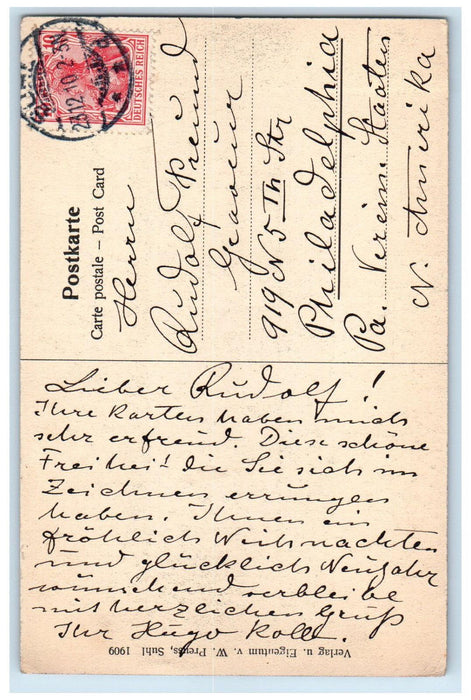 Postkarte
Carte postale – Post Card
Herrn
Rudolf Freund
Graveur
919 N 5 Th Str
Philadelphia
Pa. Verein. Staaten
N. Amerika
DEUTSCHES REICH
10
23.12.10. 2-3N
Lieber Rudolf!
Ihre Karten haben mich
sehr erfreud. Diese schöne
Freiheit die Sie sich im
Zeichnen errungen
haben. Ihnen ein
fröhlich Weihnachten
und glücklich Neujahr
wünschend verbleibe
mit herzlichen Gruß
Ihr Hugo Koll.
Verlag u. Eigentum v. W. Preuss, Suhl 1909